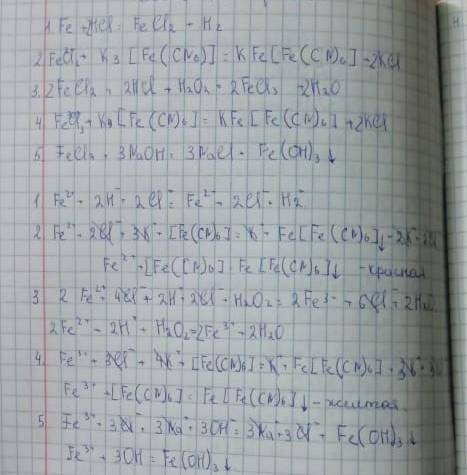 1. Fe + 2HCl = FeCl₂ + H₂
2. FeCl₂ + K₃[Fe(CN)₆] = KFe[Fe(CN)₆] + 2KCl
3. 2FeCl₂ + 2HCl + H₂O₂ = 2FeCl₃ + 2H₂O
4. FeCl₃ + K₄[Fe(CN)₆] = KFe[Fe(CN)₆] + 3KCl
5. FeCl₃ + 3NaOH = 3NaCl + Fe(OH)₃↓
1. Fe + 2H⁺ + 2Cl⁻ = Fe²⁺ + 2Cl⁻ + H₂
2. Fe²⁺ + 2Cl⁻ + 3K⁺ + [Fe(CN)₆] = K⁺ + Fe[Fe(CN)₆]↓ + 2K⁺ + 2Cl⁻
Fe²⁺ + [Fe(CN)₆] = Fe[Fe(CN)₆]↓ - красная
3. 2Fe²⁺ + 4Cl⁻ + 2H⁺ + 2Cl⁻ + H₂O₂ = 2Fe³⁺ + 6Cl⁻ + 2H₂O
2Fe²⁺ + 2H⁺ + H₂O₂ = 2Fe³⁺ + 2H₂O
4. Fe³⁺ + 3Cl⁻ + 4K⁺ + [Fe(CN)₆] = K⁺ + Fe[Fe(CN)₆]↓ + 3K⁺ + 3Cl⁻
Fe³⁺ + [Fe(CN)₆] = Fe[Fe(CN)₆]↓ - желтая
5. Fe³⁺ + 3Cl⁻ + 3Na⁺ + 3OH⁻ = 3Na⁺ + 3Cl⁻ + Fe(OH)₃↓
Fe³⁺ + 3OH = Fe(OH)₃↓